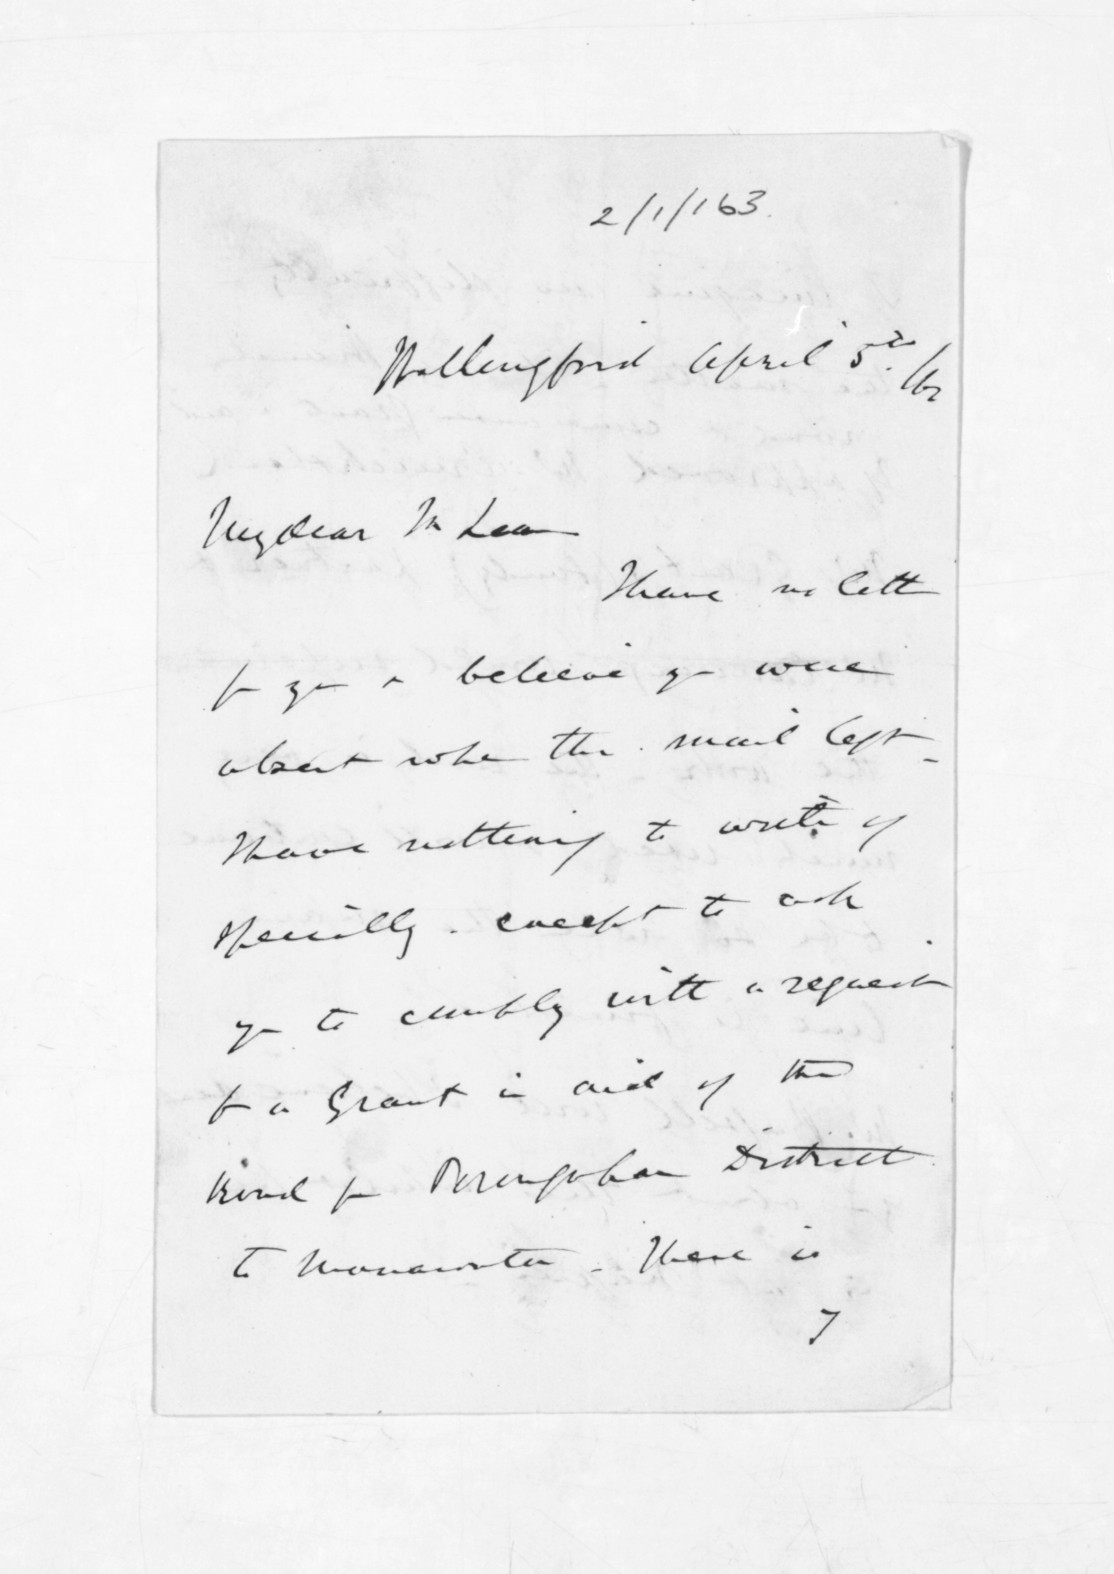 2/1/163.
Wallingford April 5th /62
My dear McLean
I have no lett
fr yr & believe yr were
absent when the mail left -
I have nothing to write of
specially. except to ask
yr to comply with a request
for a Grant in aid of the
Road fr Porongahau District
to Manawatu - There is